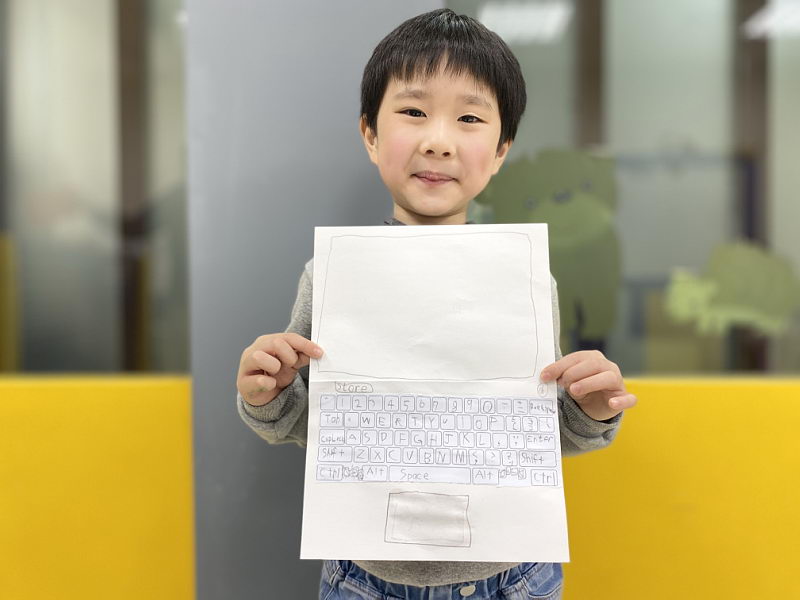 store
1 2 3 4 5 6 7 8 9 0 - =
Tab W E R T Y U I O P
A S D F G H J K L ; Enter
Shift Z X C V B N M Shift
Ctrl Alt Space Alt Ctrl